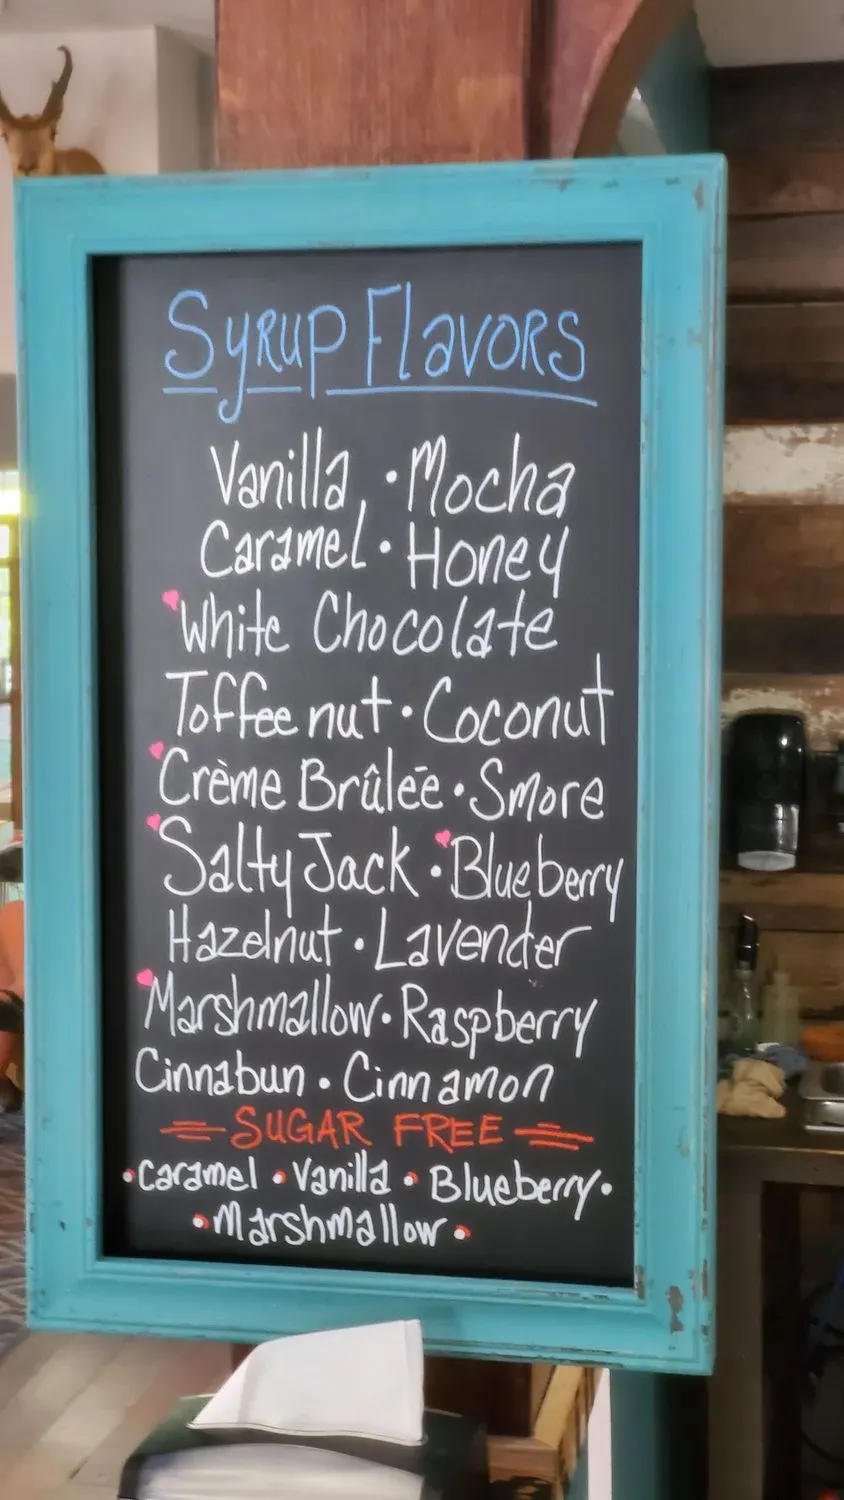 Syrup Flavors
Vanilla · Mocha
Caramel · Honey
White Chocolate
Toffee nut · Coconut
Crème Brûlēe · Smore
Salty Jack · Blueberry
Hazelnut · Lavender
Marshmallow · Raspberry
Cinnabun · Cinnamon
SUGAR FREE
· Caramel · Vanilla · Blueberry ·
· Marshmallow ·